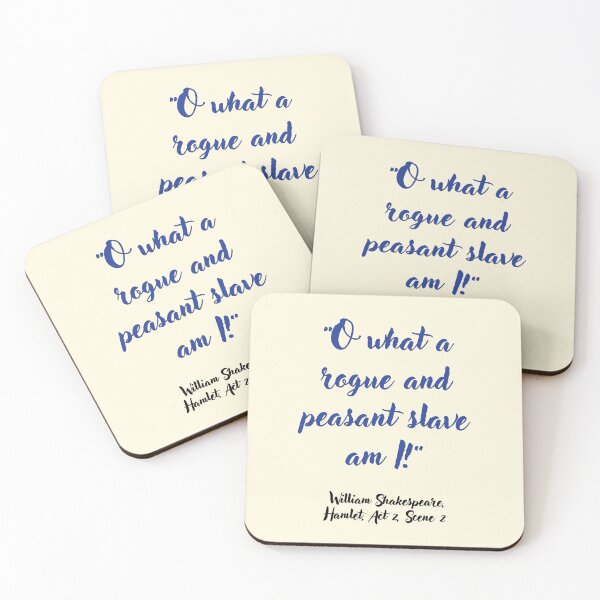 "O what a
rogue and
peasant slave
"O what a
rogue and
peasant slave
am I!"
"O what a
rogue and
peasant slave
am I!"
William Shake
Hamlet, Act 2
"O what a
rogue and
peasant slave
am I!"
William Shakespeare,
Hamlet, Act 2, Scene 2